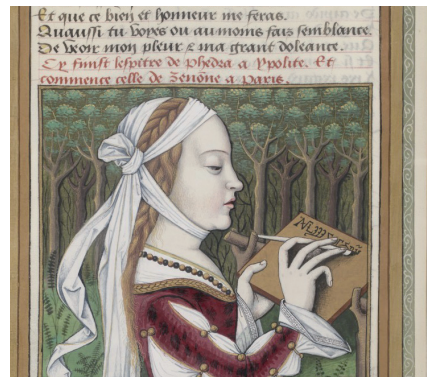 Et que ce bien et honneur me feras.
Quaussi tu voyes ou au moins fais semblance.
De veoir mon pleur ⁊ ma grant doleance.
Cy finist lespitre de Phedra a Ypolite. Et
commence celle de Zenone a Paris.